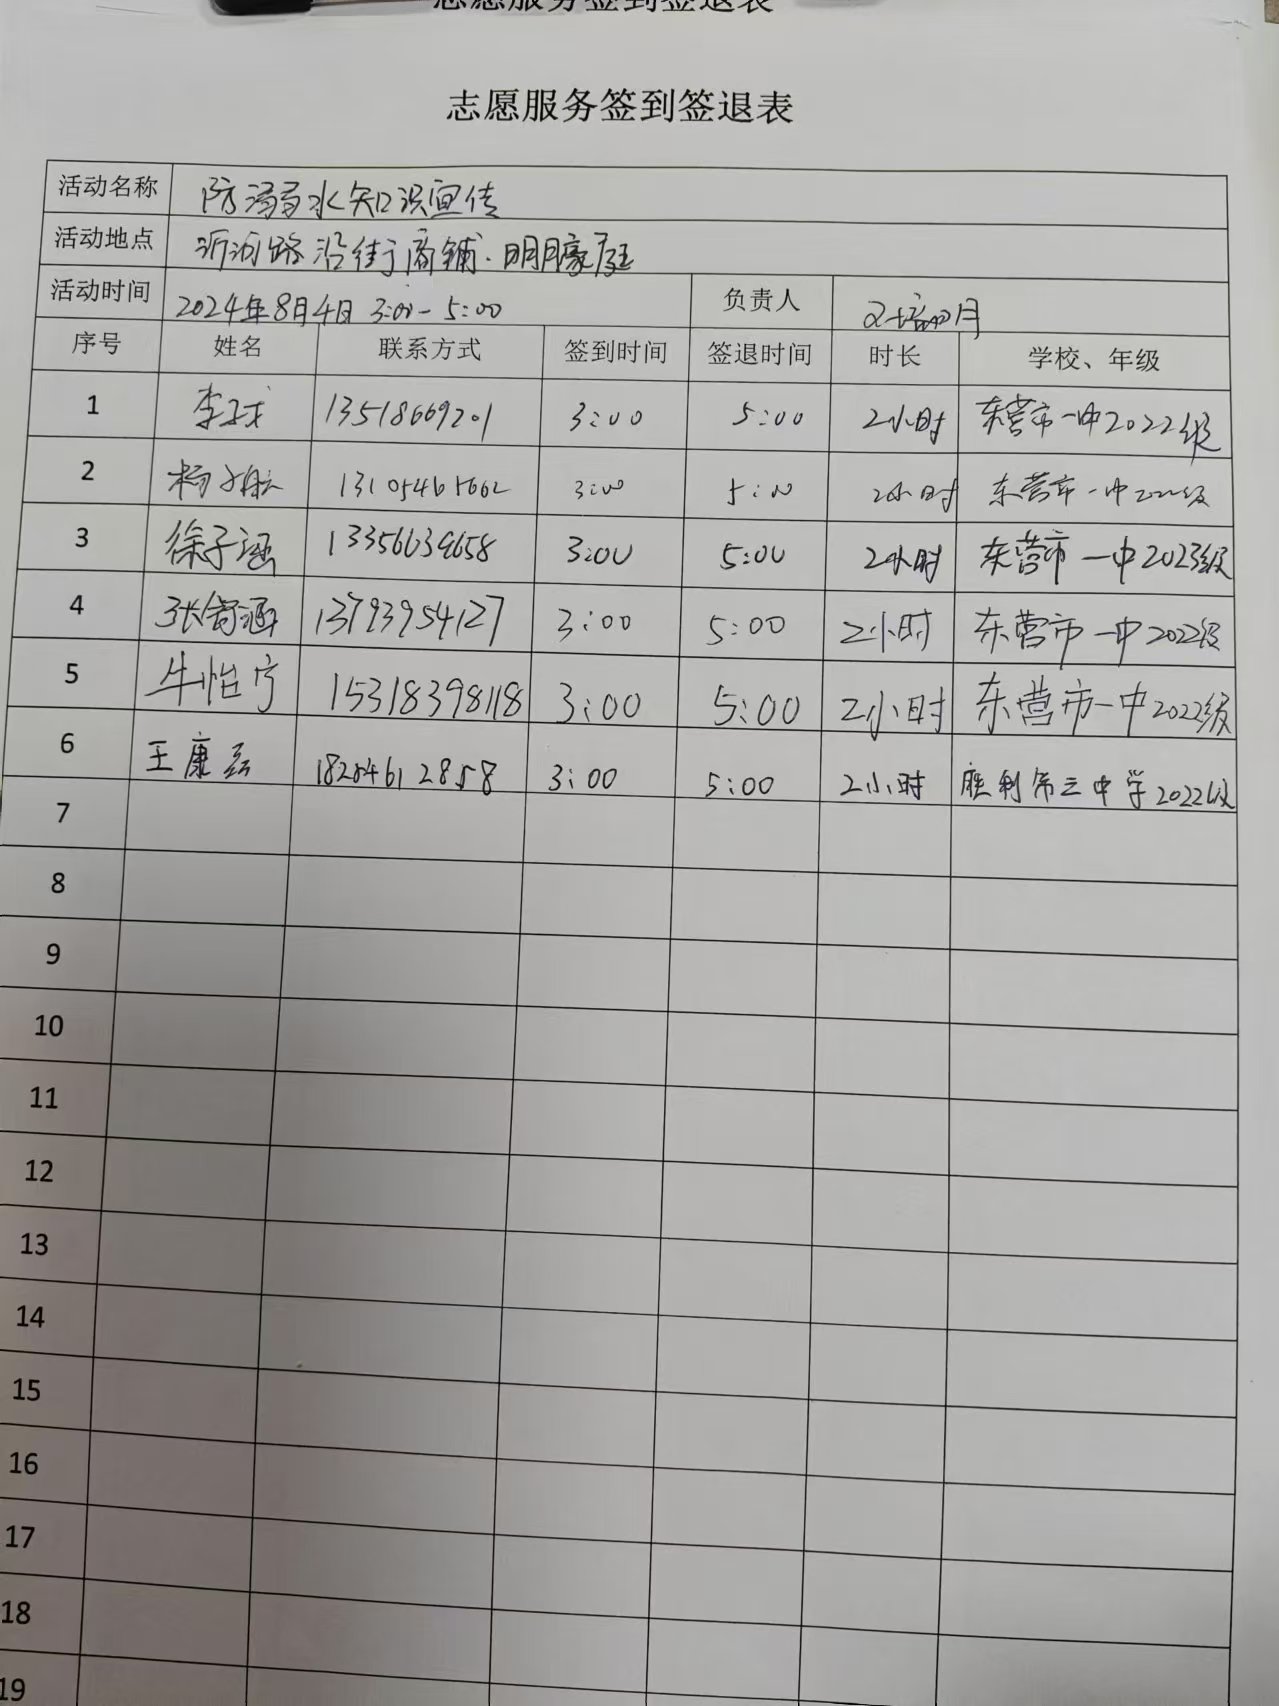 志愿服务签到签退表
志愿服务签到签退表
活动名称 防溺水知识宣传
活动地点 沂河路沿街商铺.明月豪庭
活动时间 2024年8月4日 3:00-5:00 负责人
序号 姓名 联系方式 签到时间 签退时间 时长 学校、年级
1 13518669201 3:00 5:00 2小时 东营市一中2022级
2 杨子航 13105465662 3:00 5:00 2小时 东营市一中2022级
3 徐子涵 3:00 5:00 2小时 东营市一中2023级
4 张舒涵 13793954127 3:00 5:00 2小时 东营市一中2022级
5 牛怡宁 15318398118 3:00 5:00 2小时 东营市一中2022级
6 王康磊 18254612858 3:00 5:00 2小时 胜利第三中学2022级
7
8
9
10
11
12
13
14
15
16
17
18
19